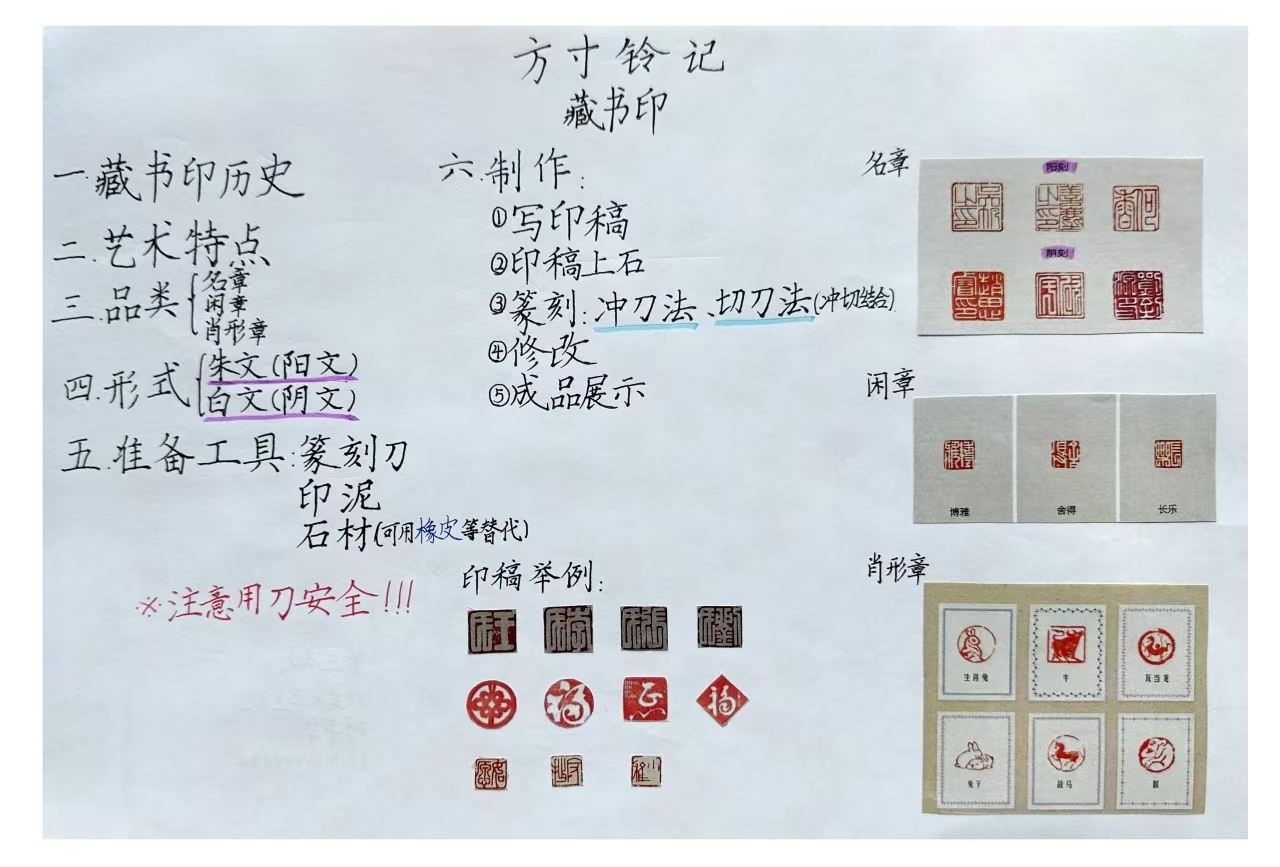 方寸铃记
藏书印
一.藏书印历史
二.艺术特点
三.品类
名章
闲章
肖形章
四.形式
朱文(阳文)
白文(阴文)
五.准备工具:篆刻刀
印泥
石材(可用橡皮等替代)
※注意用刀安全!!!
六.制作:
①写印稿
②印稿上石
③篆刻:冲刀法、切刀法(冲切结合)
④修改
⑤成品展示
印稿举例:
福
福
名章
阳刻
阴刻
闲章
博雅
舍得
长乐
肖形章
生肖兔
牛
瓦当龙
兔子
战马